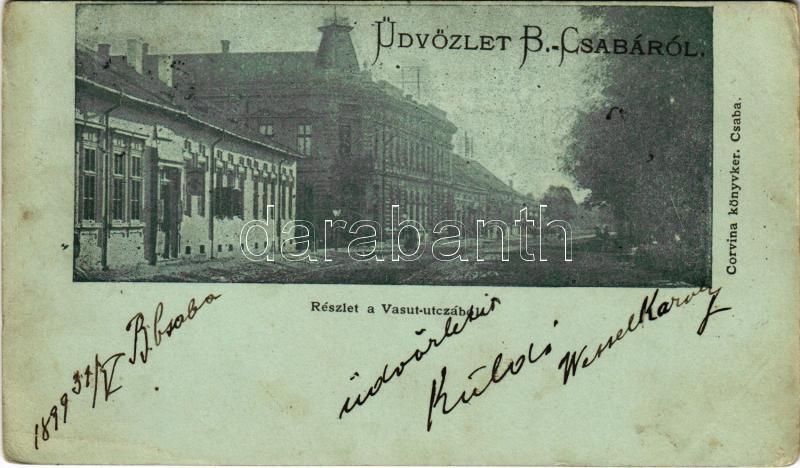 ÜDVÖZLET B.-CSABÁRÓL.
Corvina könyvker. Csaba.
darabanth
Részlet a Vasut-utczából
1899 31/V B.csaba
üdvözletit
Küldi
Wessel Karoly